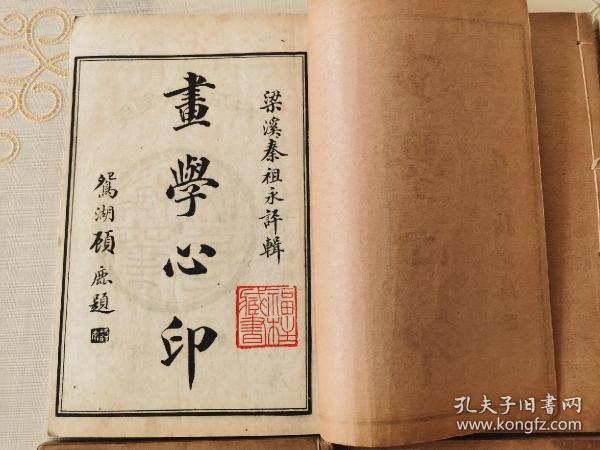 梁溪秦祖永評輯
畫學心印
鴛湖頋麃題
孔夫子旧书网
www.kongfz.com